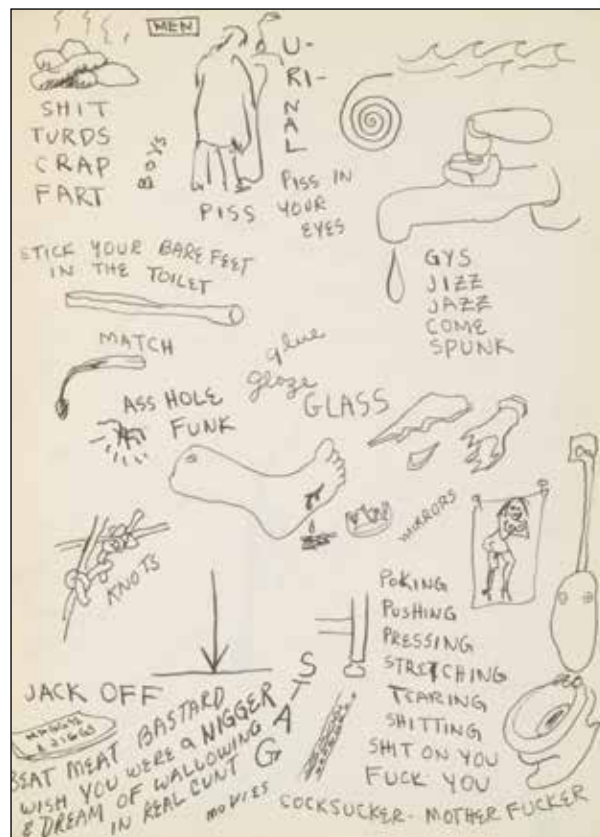 MEN
U-
RI-
N
A
L
SHIT
TURDS
CRAP
FART
BOYS
PISS
PISS IN
YOUR
EYES
STICK YOUR BARE FEET
IN THE TOILET
GYS
JIZZ
JAZZ
COME
SPUNK
MATCH
glue
glaze
GLASS
ASS HOLE
FUNK
MIRRORS
KNOTS
POKING
PUSHING
PRESSING
STRETCHING
TEARING
SHITTING
SHIT ON YOU
FUCK YOU
JACK OFF
BEAT MEAT BASTARD
WISH YOU WERE a NIGGER
& DREAM OF WALLOWING
IN REAL CUNT
S
T
A
G
MOVIES
COCKSUCKER - MOTHER FUCKER